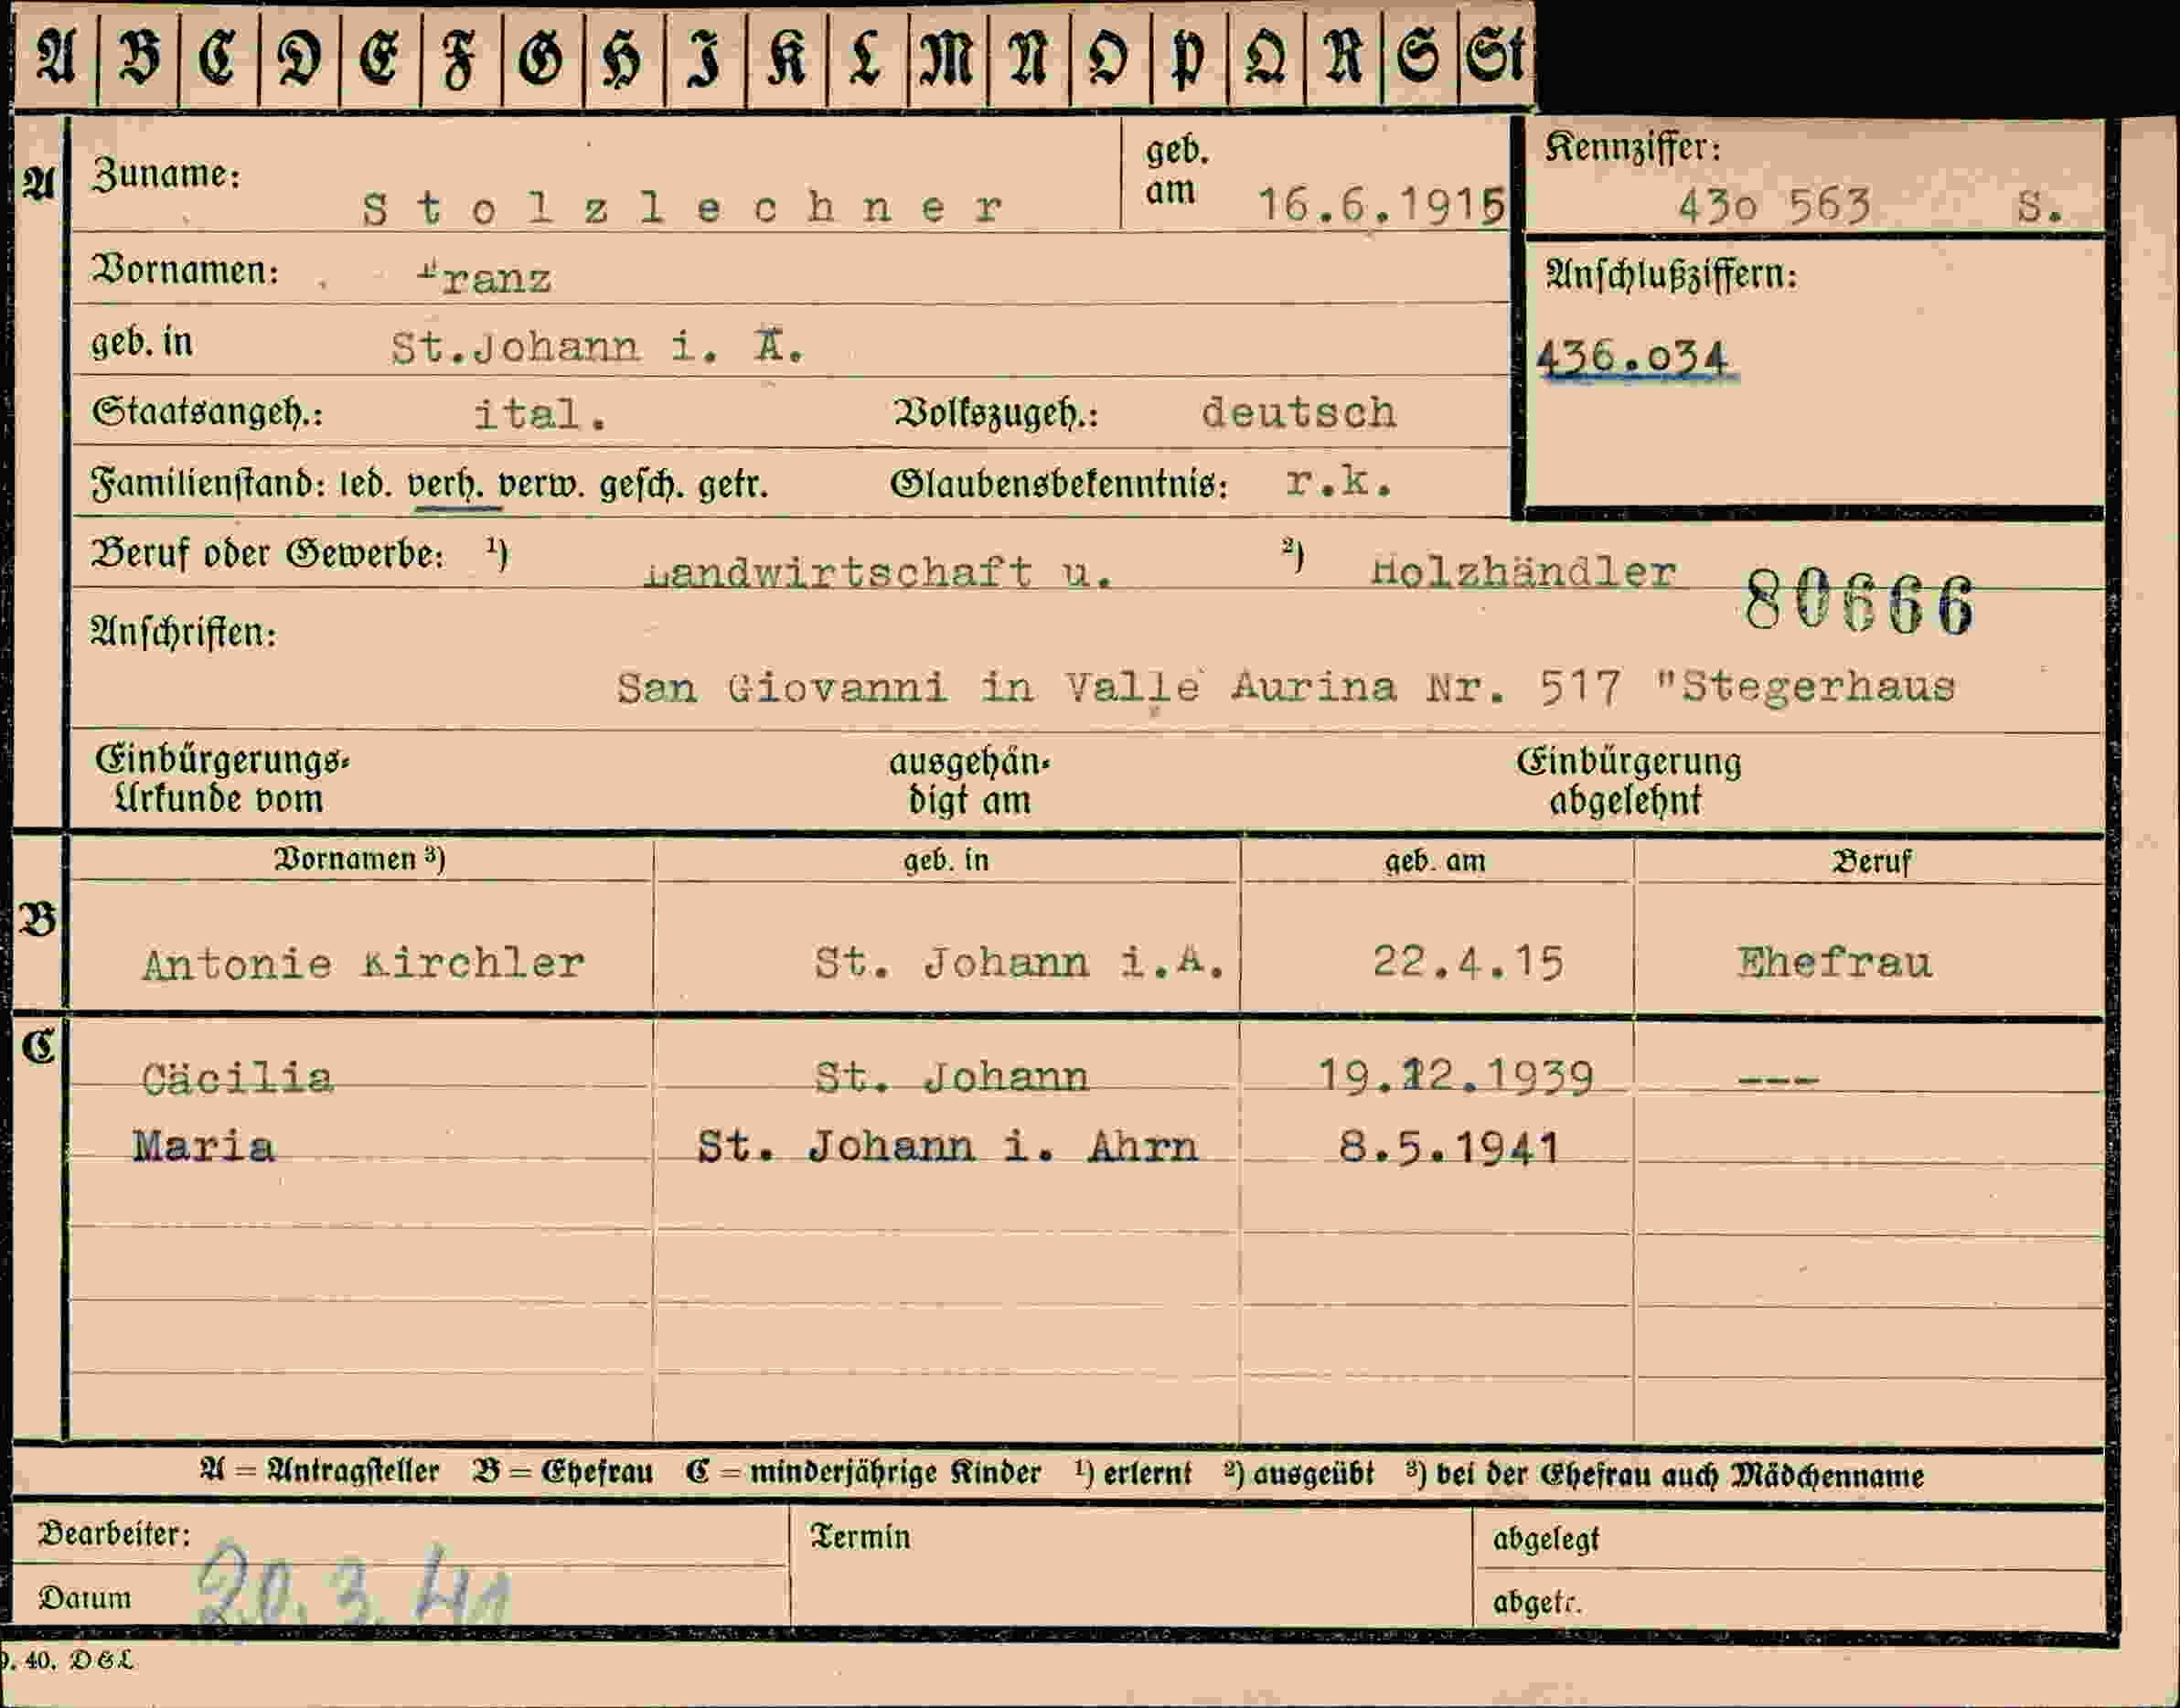 A B C D E F G H I K L M N O P Q R S St
A Zuname: Stolzlechner geb. am 16.6.1915 Kennziffer: 43o 563 S.
Vornamen: Franz Anschlußziffern:
geb. in St.Johann i. A. 436.o34
Staatsangeh.: ital. Volkszugeh.: deutsch
Familienstand: led. verh. verw. gesch. getr. Glaubensbekenntnis: r.k.
Beruf oder Gewerbe: ¹) Landwirtschaft u. ²) Holzhändler 80666
Anschriften:
San Giovanni in Valle Aurina Nr. 517 "Stegerhaus
Einbürgerungs- ausgehän- Einbürgerung
Urkunde vom digt am abgelehnt
Vornamen ³) geb. in geb. am Beruf
B Antonie Kirchler St. Johann i.A. 22.4.15 Ehefrau
C Cäcilia St. Johann 19.12.1939 ---
Maria St. Johann i. Ahrn 8.5.1941
A = Antragsteller B = Ehefrau C = minderjährige Kinder ¹) erlernt ²) ausgeübt ³) bei der Ehefrau auch Mädchenname
Bearbeiter: Termin abgelegt
Datum 20.3.41 abgetr.
40. D & L